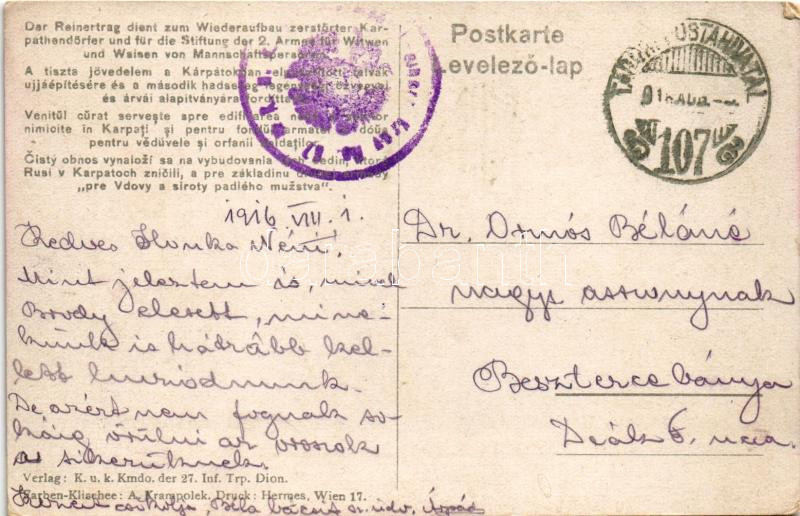 Der Reinertrag dient zum Wiederaufbau zerstörter Kar-
pathendörfer und für die Stiftung der 2. Armee für Witwen
und Waisen von Mannschaftspersonen.
A tiszta jövedelem a Kárpátokban elpusztított falvak
ujjáépítésére és a második hadsereg legénységi özvegyei
és árvái alapítványára fordíttatik.
Venitŭl cŭrat servește spre edificarea
nimicite în Karpați și pentru armatei
pentru vĕdŭvele și orfanii soldaților.
Čistý obnos vynaloží sa na vybudovania tých dedin, ktoré
Rusi v Karpatoch zničili, a pre základinu
„pre Vdovy a siroty padlého mužstva".
Postkarte
Levelező-lap
TÁBORI POSTAHIVATAL
916 AUG.
107
1916 VIII. 1.
Kedves Ilonka Néni!
Mint jeleztem is, mivel
Brody elesett, mine-
künk is hátrább kel-
lett huzódnunk.
De azért nem fognak so-
káig örülni az oroszok
a sikerüknek.
Dr. Ormós Béláné
nagys asszonynak
Besztercebánya
Deák F. ucca.
Verlag: K. u. k. Kmdo. der 27. Inf. Trp. Dion.
Farben-Klischee: A. Krampolek. Druck: Hermes, Wien 17.
Kezeit csókolja, Béla bácsit sz. üdv. Árpád
databanth